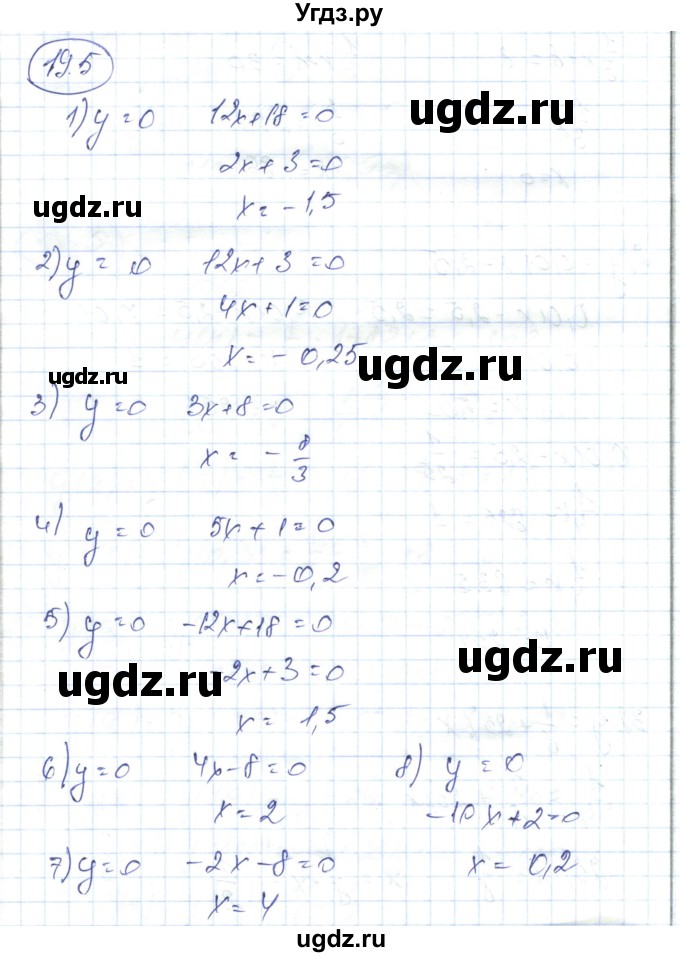 Угдз.ру
19.5
1) y = 0 12x+18 = 0
2x + 3 = 0
x = - 1,5
2) y = 0 12x + 3 = 0
4x + 1 = 0
x = - 0,25
3) y = 0 3x + 8 = 0
x = - 8/3
4) y = 0 5x + 1 = 0
x = - 0,2
5) y = 0 -12x + 18 = 0
-2x + 3 = 0
x = 1,5
6) y = 0 4x - 8 = 0
x = 2
7) y = 0 -2x - 8 = 0
x = 4
8) y = 0
-10x + 2 = 0
x = 0,2
ugdz.ru
ugdz.ru
ugdz.ru
ugdz.ru
ugdz.ru
ugdz.ru
ugdz.ru